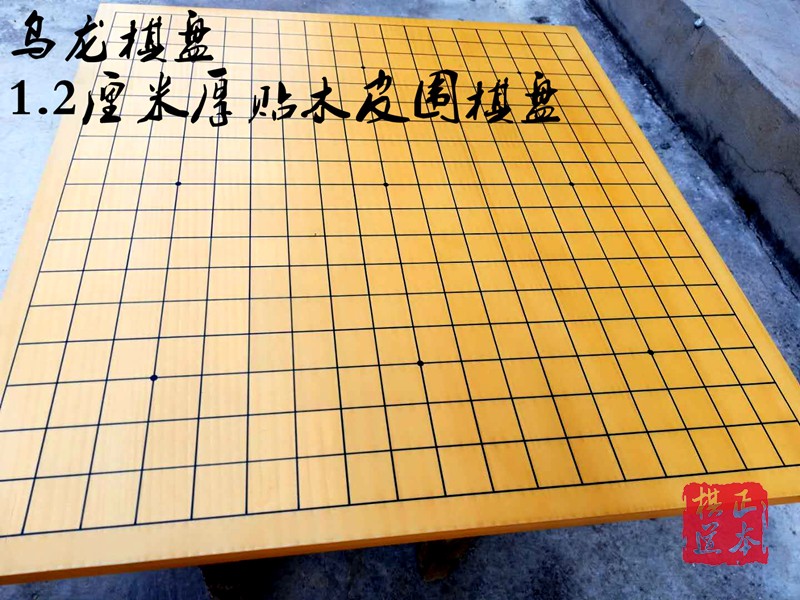 乌龙棋盘
1.2厘米厚贴木皮围棋盘
正本
棋道